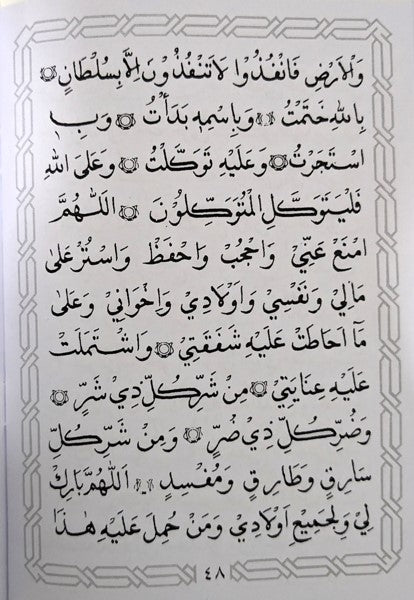 وَالْاَرْضِ فَانْفُذُوْا لَا تَنْفُذُوْنَ اِلَّا بِسُلْطَانٍ ۞
بِاللّٰهِ خَتَمْتُ ۞ وَبِاسْمِهٖ بَدَأْتُ ۞ وَبِهِ
اسْتَجَرْتُ ۞ وَعَلَيْهِ تَوَكَّلْتُ ۞ وَعَلَى اللّٰهِ
فَلْيَتَوَكَّلِ الْمُتَوَكِّلُوْنَ ۞ اَللّٰهُمَّ
امْنَعْ عَنِّيْ وَاحْجُبْ وَاحْفَظْ وَاسْتُرْ عَلٰى
مَالِيْ وَنَفْسِيْ وَاَوْلَادِيْ وَاِخْوَانِيْ وَعَلٰى
مَآ اَحَاطَتْ عَلَيْهِ شَفَقَتِيْ ۞ وَاشْتَمَلَتْ
عَلَيْهِ عِنَايَتِيْ ۞ مِنْ شَرِّ كُلِّ ذِيْ شَرٍّ ۞
وَضُرِّ كُلِّ ذِيْ ضُرٍّ ۞ وَمِنْ شَرِّ كُلِّ
سَارِقٍ وَطَارِقٍ وَمُفْسِدٍ ۞ اَللّٰهُمَّ بَارِكْ
لِيْ وَلِجَمِيْعِ اَوْلَادِيْ وَمَنْ حُمِلَ عَلَيْهِ هٰذَا
٤٨